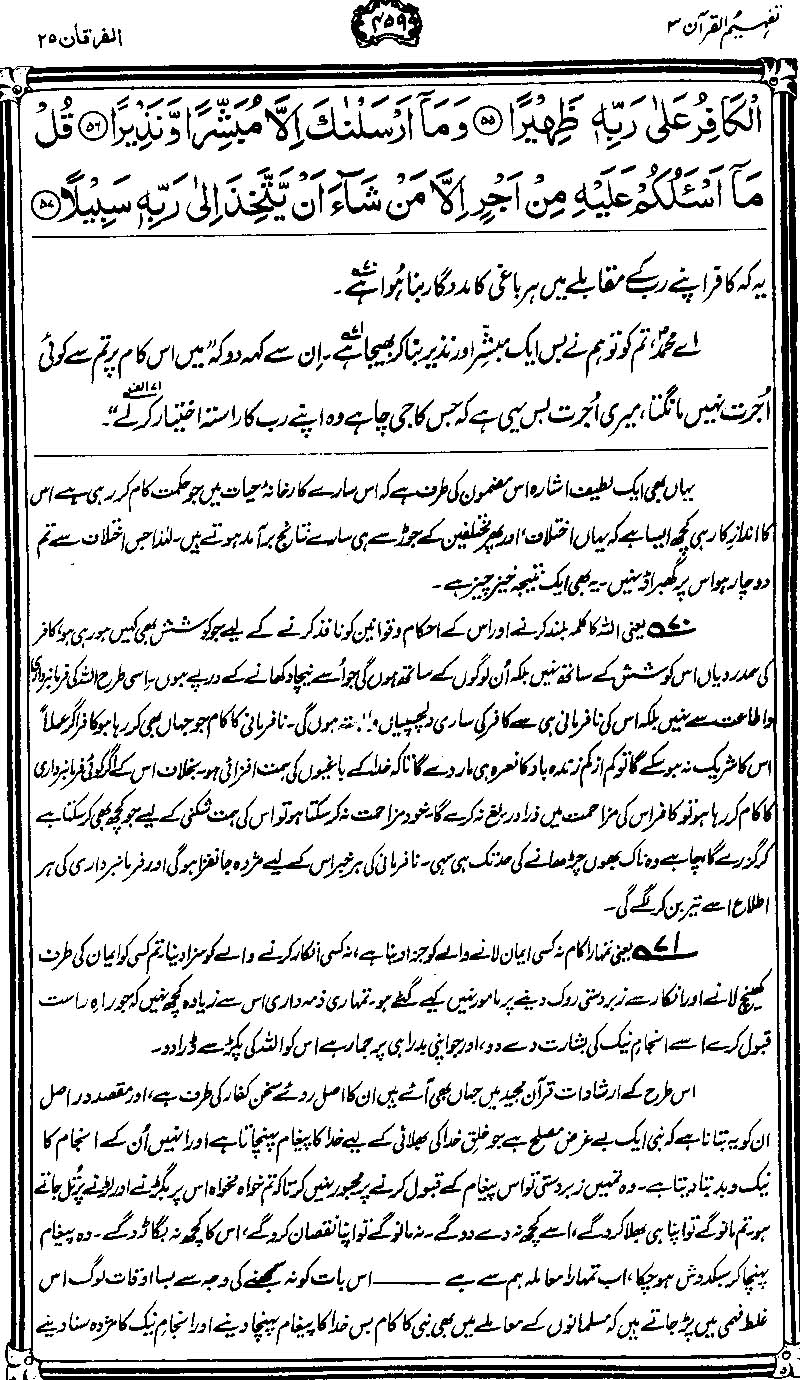 تفہیم القرآن ۳
۴۵۹
الفرقان ۲۵
الْكَافِرُ عَلٰى رَبِّهٖ ظَهِيْرًا ﴿۵۵﴾ وَمَاۤ اَرْسَلْنٰكَ اِلَّا مُبَشِّرًا وَّنَذِيْرًا ﴿۵۶﴾ قُلْ
مَاۤ اَسْئَلُكُمْ عَلَيْهِ مِنْ اَجْرٍ اِلَّا مَنْ شَآءَ اَنْ يَّتَّخِذَ اِلٰى رَبِّهٖ سَبِيْلًا ﴿۵۷﴾
یہ کہ کافر اپنے رب کے مقابلے میں ہر باغی کا مددگار بنا ہُوا ہے۷۰۔
اے محمدؐ، تم کو تو ہم نے بس ایک مبشّر اور نذیر بنا کر بھیجا ہے۷۱۔ اِن سے کہہ دو کہ ”میں اس کام پر تم سے کوئی
اُجرت نہیں مانگتا، میری اُجرت بس یہی ہے کہ جس کا جی چاہے وہ اپنے رب کا راستہ اختیار کرلے۷۱الف“۔
یہاں بھی ایک لطیف اشارہ اس مضمون کی طرف ہے کہ اس سارے کارخانۂ حیات میں جو حکمت کام کر رہی ہے اس
کا اندازِ کار ہی کچھ ایسا ہے کہ یہاں اختلاف اور پھر مختلفین کے جوڑ سے ہی سارے نتائج برآمد ہوتے ہیں۔ لہٰذا جس اختلاف سے تم
دوچار ہو اس پر گھبراؤ نہیں۔ یہ بھی ایک نتیجہ خیز چیز ہے۔
۷۰ یعنی اللہ کا کلمہ بلند کرنے اور اس کے احکام و قوانین کو نافذ کرنے کے لیے جو کوشش بھی کہیں ہو رہی ہو، کافر
کی ہمدردیاں اس کوشش کے ساتھ نہیں بلکہ اُن لوگوں کے ساتھ ہوں گی جو اُسے نیچا دکھانے کے درپے ہوں۔ اِسی طرح اللہ کی فرمانبرداری
و اطاعت سے نہیں بلکہ اس کی نافرمانی ہی سے کافر کی ساری دلچسپیاں وابستہ ہوں گی۔ نافرمانی کا کام جو جہاں بھی کر رہا ہو کافر اگر عملاً
اس کا شریک نہ ہو سکے گا تو کم از کم زندہ باد کا نعرہ ہی مار دے گا تاکہ خدا کے باغیوں کی ہمت افزائی ہو۔ بخلاف اس کے اگر کوئی فرمانبرداری
کا کام کر رہا ہو تو کافر اس کی مزاحمت میں ذرا دریغ نہ کرے گا۔ خود مزاحمت نہ کر سکتا ہو تو اس کی ہمت شکنی کے لیے جو کچھ بھی کر سکتا ہے
کر گزرے گا چاہے وہ ناک بھوں چڑھانے کی حد تک ہی سہی۔ نافرمانی کی ہر خبر اس کے لیے مژدہ جانفزا ہوگی اور فرمانبرداری کی ہر
اطلاع اسے تیر بن کر لگے گی۔
۷۱ یعنی تمہارا کام نہ کسی ایمان لانے والے کو جزا دینا ہے، نہ کسی انکار کرنے والے کو سزا دینا۔ تم کسی کو ایمان کی طرف
کھینچ لانے اور انکار سے زبردستی روک دینے پر مامور نہیں کیے گئے ہو۔ تمہاری ذمہ داری اس سے زیادہ کچھ نہیں کہ جو راہِ راست
قبول کرے اسے انجامِ نیک کی بشارت دے دو، اور جو اپنی بدراہی پر جما رہے اس کو اللہ کی پکڑ سے ڈرا دو۔
اس طرح کے ارشادات قرآن مجید میں جہاں بھی آئے ہیں ان کا اصل روئے سخن کفار کی طرف ہے، اور مقصد دراصل
ان کو یہ بتانا ہے کہ نبی ایک بے غرض مصلح ہے جو خلقِ خدا کی بھلائی کے لیے خدا کا پیغام پہنچاتا ہے اور انہیں اُن کے انجام کا
نیک و بد بتا دیتا ہے۔ وہ تمہیں زبردستی تو اس پیغام کے قبول کرنے پر مجبور نہیں کرتا کہ تم خواہ مخواہ اس پر بگڑنے اور لڑنے پر تُل جاتے
ہو۔ تم مانو گے تو اپنا ہی بھلا کرو گے، اسے کچھ نہ دے دو گے۔ نہ مانو گے تو اپنا نقصان کرو گے، اس کا کچھ نہ بگاڑو گے۔ وہ پیغام
پہنچا کر سبکدوش ہو چکا، اب تمہارا معاملہ ہم سے ہے ——— اس بات کو نہ سمجھنے کی وجہ سے بسا اوقات لوگ اس
غلط فہمی میں پڑ جاتے ہیں کہ مسلمانوں کے معاملے میں بھی نبی کا کام بس خدا کا پیغام پہنچا دینے اور انجامِ نیک کا مژدہ سنا دینے